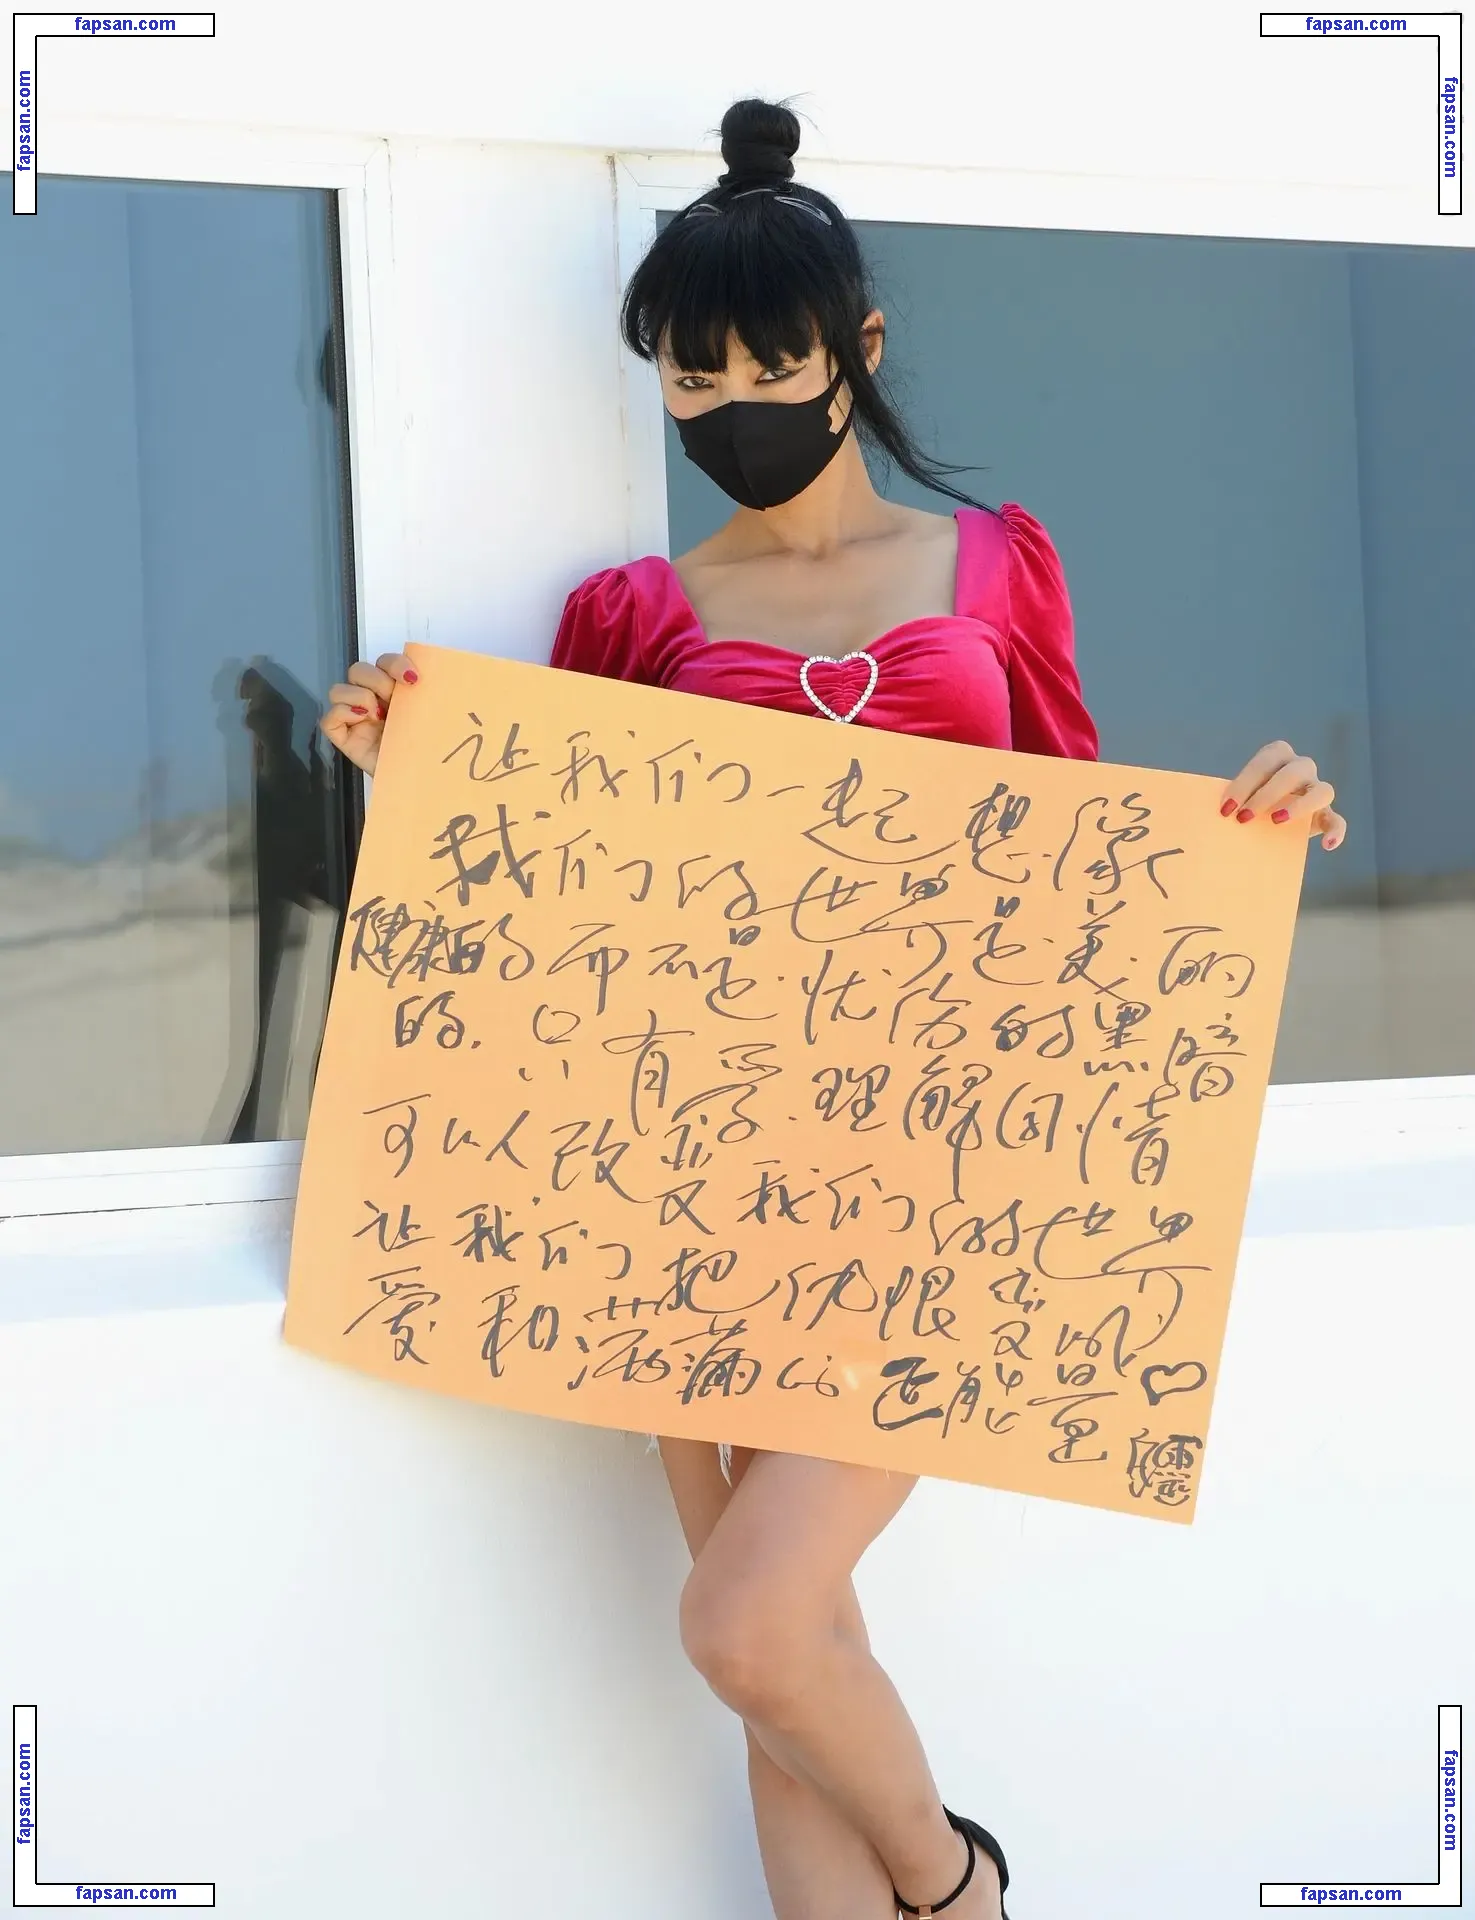 fapsan.com
fapsan.com
fapsan.com
fapsan.com
让我们一起想像
我们的世界是美丽
健康的而不是忧伤的黑暗
的.只有爱.理解同情
可以改变我们的世界
让我们把仇恨变成
爱和洒满的正能量
fapsan.com
fapsan.com
fapsan.com
fapsan.com